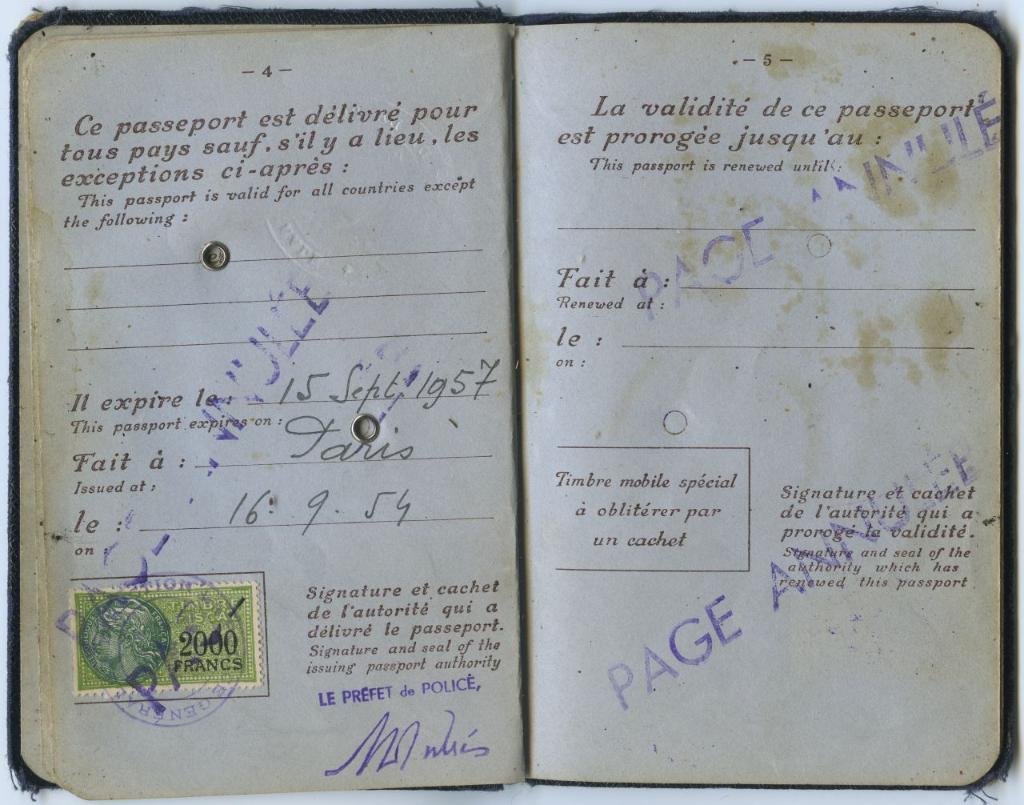 — 4 —
Ce passeport est délivré pour
tous pays sauf, s'il y a lieu, les
exceptions ci-après :
This passport is valid for all countries except
the following :
ANNULÉE
Il expire le : 15 Sept. 1957
This passport expires on :
Fait à : Paris
Issued at :
le : 16. 9. 54
on :
2000
FRANCS
Signature et cachet
de l'autorité qui a
délivré le passeport.
Signature and seal of the
issuing passport authority
LE PRÉFET de POLICE,
— 5 —
La validité de ce passeport
est prorogée jusqu'au :
This passport is renewed until :
PAGE ANNULÉE
Fait à :
Renewed at :
le :
on :
Timbre mobile spécial
à oblitérer par
un cachet
Signature et cachet
de l'autorité qui a
prorogé la validité.
Signature and seal of the
authority which has
renewed this passport
PAGE ANNULÉE